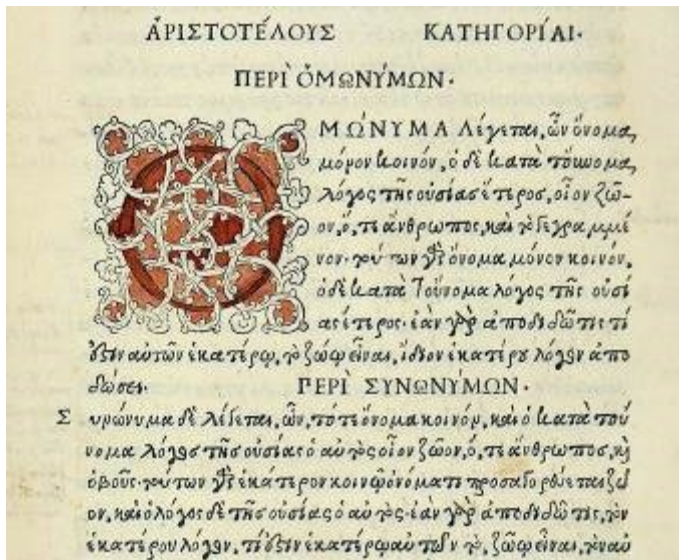 ἈΡΙΣΤΟΤΈΛΟΥΣ ΚΑΤΗΓΟΡΊΑΙ·
ΠΕΡῚ ὉΜΩΝΎΜΩΝ·
ΜΏΝΥΜΑ λέγεται, ὧν ὄνομα
μόνον κοινόν, ὁ δὲ κατὰ τοὔνομα
λόγος τῆς οὐσίας ἕτερος, οἷον ζῶ-
ον, ὅ, τε ἄνθρωπος, καὶ τὸ γεγραμμέ
νον· τούτων γὰρ ὄνομα μόνον κοινόν,
ὁ δὲ κατὰ Τοὔνομα λόγος τῆς οὐσί
ας ἕτερος· ἐὰν γὰρ ἀποδιδῶ τις τί
ὅξιν αὐτῶν ἑκατέρῳ, τὸ ζώῳ εἶναι, ἴδιον ἑκατέρου λόγον ἀπο
δώσει· ΠΕΡῚ ΣΥΝΩΝΎΜΩΝ·
Συνώνυμα δὲ λέγεται, ὧν, τό τε ὄνομα κοινόν, καὶ ὁ κατὰ τοὔ
νομα λόγος τῆς οὐσίας ὁ αὐτὸς οἷον ζῶον, ὅ, τε ἄνθρωπος, καὶ
ὁ βοῦς· τούτων γὰρ ἑκάτερον κοινῷ ὀνόματι προσαγορεύεται ζῶ
ον, καὶ ὁ λόγος δὲ τῆς οὐσίας ὁ αὐτός· ἐὰν γὰρ ἀποδιδῶ τις, τὸν
ἑκατέρου λόγον, τί ἐστιν ἑκατέρῳ αὐτῶν τὸ, ζώῳ εἶναι, τὸν αὐ